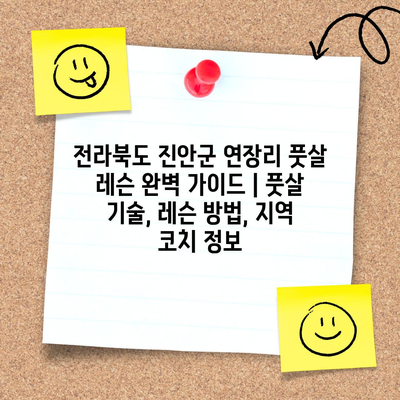 전라북도 진안군 연장리 풋살
레슨 완벽 가이드 | 풋살
기술, 레슨 방법, 지역
코치 정보